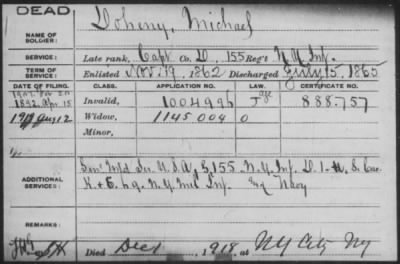 DEAD
NAME OF SOLDIER: Doheny, Michael
SERVICE: Late rank, Capt Co. D, 155 Reg't N.Y. Inf.
TERM OF SERVICE: Enlisted Nov. 19, 1862 Discharged July 15, 1865
DATE OF FILING. CLASS. APPLICATION NO. LAW. CERTIFICATE NO.
1892, Apr. 15 Invalid, 1004996 J age 888.757
Widow, 1145004 O
Minor,
ADDITIONAL SERVICES: U.S.A., & 155 N.Y. Inf. D.
N.Y. Mil Inf. and Navy
REMARKS:
Died Dec 1, 1918 at NY City NY